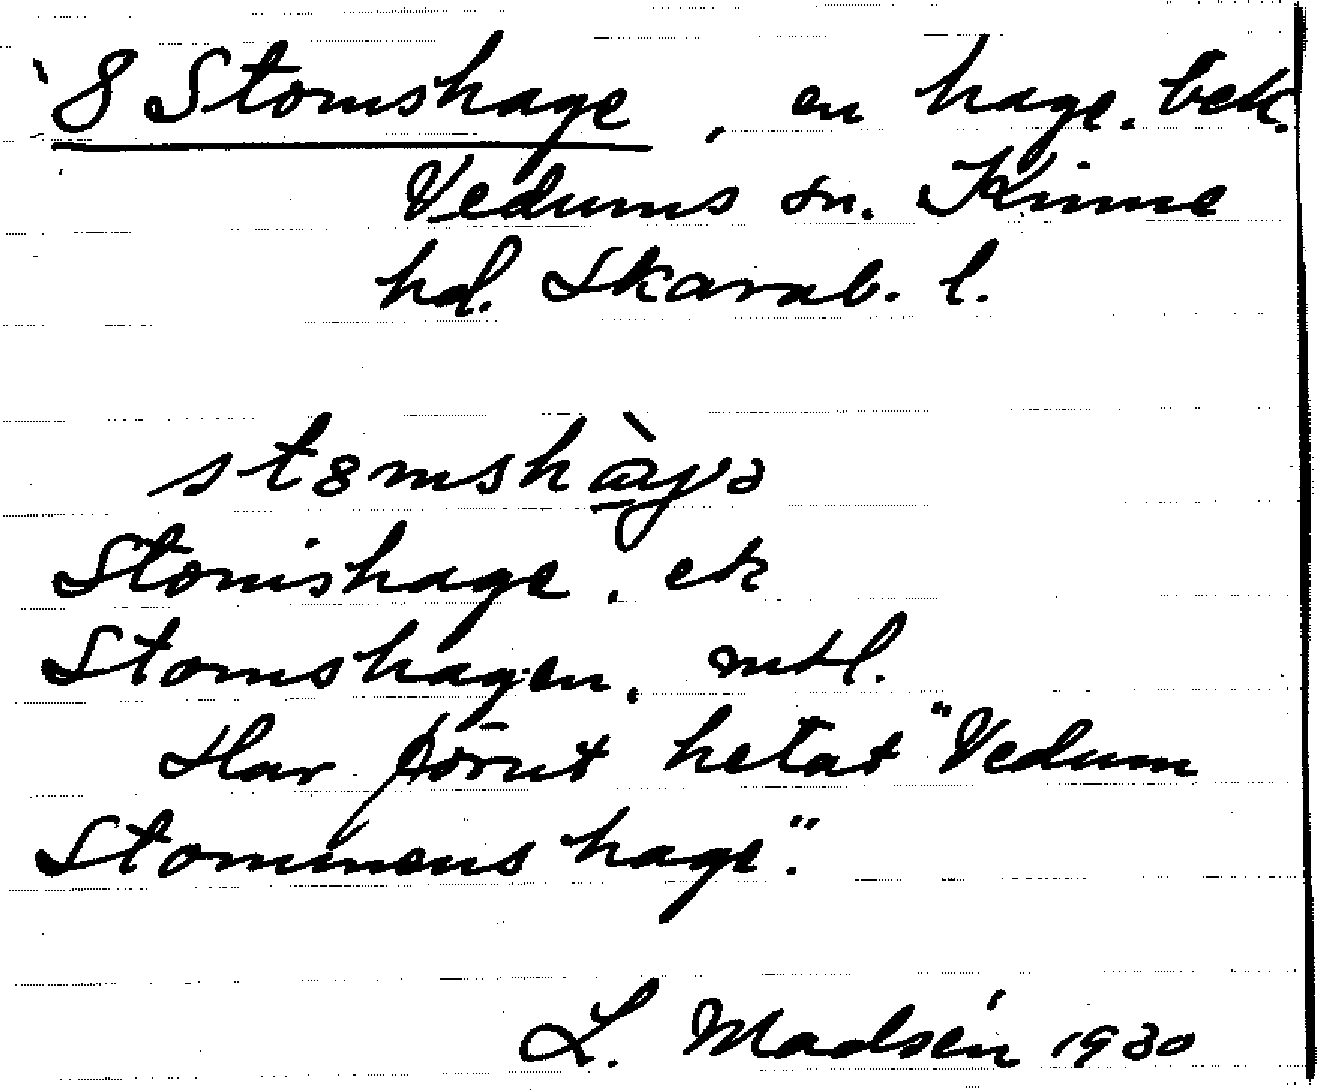 8 Stomshage, en hage. bek.
Vedums sn. Kinne
hd. Skarab. l.
Stomshage. ek
Stomshagen. mtl.
Har förut hetat "Vedum
Stommens hage".
L. Madsén 1930